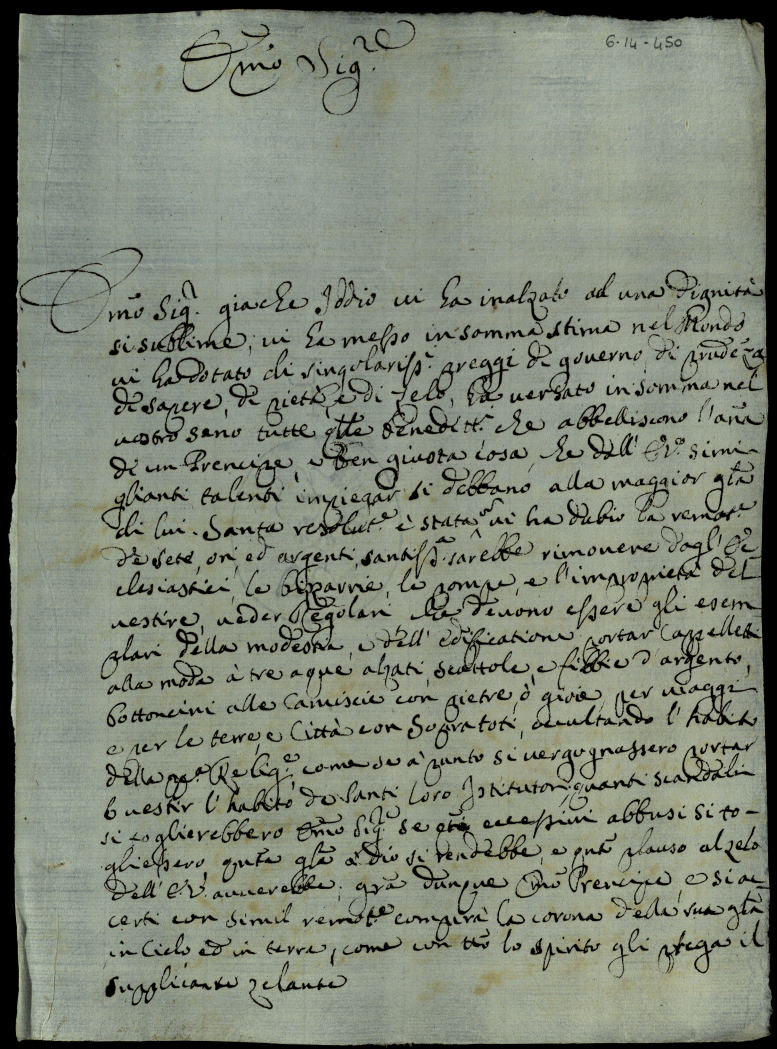 Emo Sig.re
6-14-450
Emo Sig.r giache Iddio vi ha inalzato ad una Dignità
si sublime, vi ha messo in somma stima nel Mondo
vi ha dotato di singolariss.i preggi di governo, di prudeza
di sapere, di pietà, e di zelo, ha versato in somma nel
vostro seno tutte qlle beneditt.i che abbelliscono l'aña
di un Prencipe, e ben giusta cosa, che dell' E.V. simi
glianti talenti impiegar si debbano alla maggior glã
di lui. Santa resolut.e è stata vi ha dubio la remot.e
de sete, ori, ed argenti, santiss.a sarebbe rimovere dagl' Ec
clesiastici, le bizarrie, le pompe, e l'improprietà del
vestire, veder Regolari che devono essere gli esem
plari della modestia, e dell' edificatione portar Cappelletti
alla moda à tre aque alzati, scattole, e fibbie d'argento,
bottoncini alle Camiscie con pietre, ò gioie, per viaggi
e per le terre, e Città con Sopratoti, occultando l'habito
della Relig.e, come se à punto si vergognassero portar
ò vestir l'habito de Santi loro Istitutori, quanti scandali
si toglierebbero Emo Sig.r se eccessivi abbusi si to-
gliessero, qnta glã à Dio si rendebbe, e qnto plauso al zelo
dell' E.V. avverebbe; grã dunque Emo Prencipe, e si ac
certi con simil remot.e compirà la corona della sua glã
in Cielo ed in terra, come con tto lo spirito gli prega il
supplicante zelante